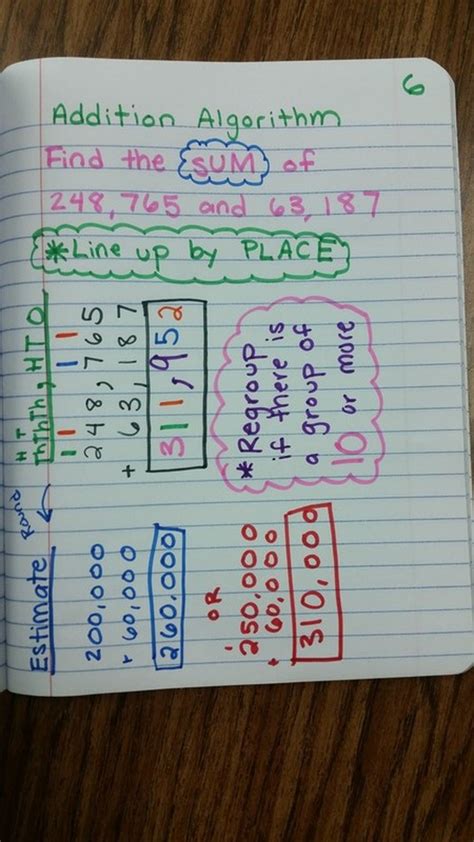 6
Addition Algorithm
Find the SUM of
248,765 and 63,187
*Line up by PLACE
H T
Th Th Th, H T O
1 1 1 1
248,765
+ 63,187
311,952
*Regroup
if there is
a group of
10 or more
Estimate
Round
200,000
+ 60,000
260,000
OR
250,000
+ 60,000
310,000